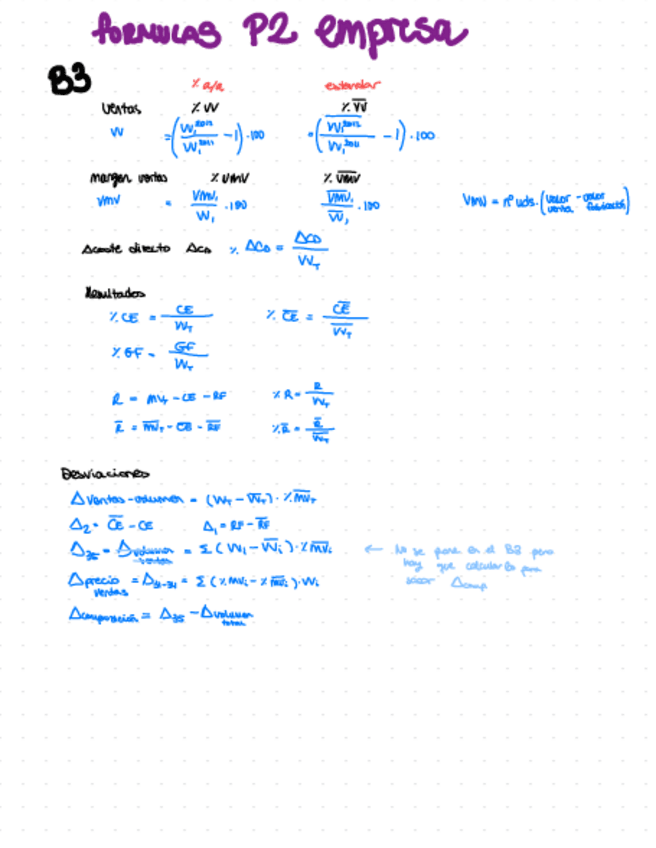 FORMULAS P2 empresa
B3
% a/a estandar
Ventas % VV % V̅V̅
VV = (VV₁²⁰¹² / VV₁²⁰¹¹ - 1) · 100 = (V̅V̅₁²⁰¹² / VV₁²⁰¹¹ - 1) · 100
margen ventas % VMV % V̅M̅V̅
VMV = VMVᵢ / Wᵢ · 100 V̅M̅V̅ᵢ / W̅ᵢ · 100 VMV = nº uds. (valor venta - valor fabricación)
Δcoste directo ΔCD % ΔCD = ΔCD / VVT
Resultados
% CE = CE / WT % C̅E̅ = C̅E̅ / V̅V̅T
% GF = GF / WT
R = MVT - CE - RF % R = R / WT
R̅ = M̅V̅T - C̅E̅ - R̅F̅ % R̅ = R̅ / W̅T
Desviaciones
Δ ventas-volumen = (WT - W̅T) · % M̅V̅T
Δ2 = C̅E̅ - CE Δ1 = RF - R̅F̅
Δ35 = Δvolumen ventas = Σ (Wᵢ - W̅ᵢ) · % M̅V̅ᵢ ← No se pone en el B3 pero
hay que calcularlo para
sacar Δcomp
Δprecio ventas = Δ31-34 = Σ (% MVᵢ - % M̅V̅ᵢ) · Wᵢ
Δcomposición = Δ35 - Δvolumen total